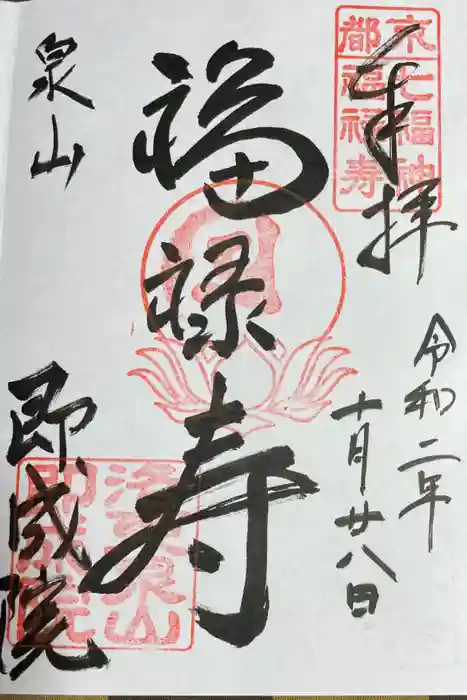 奉拝
京七福神
都福禄寿
令和二年
十月廿八日
福禄寿
泉山
即成院
即成院